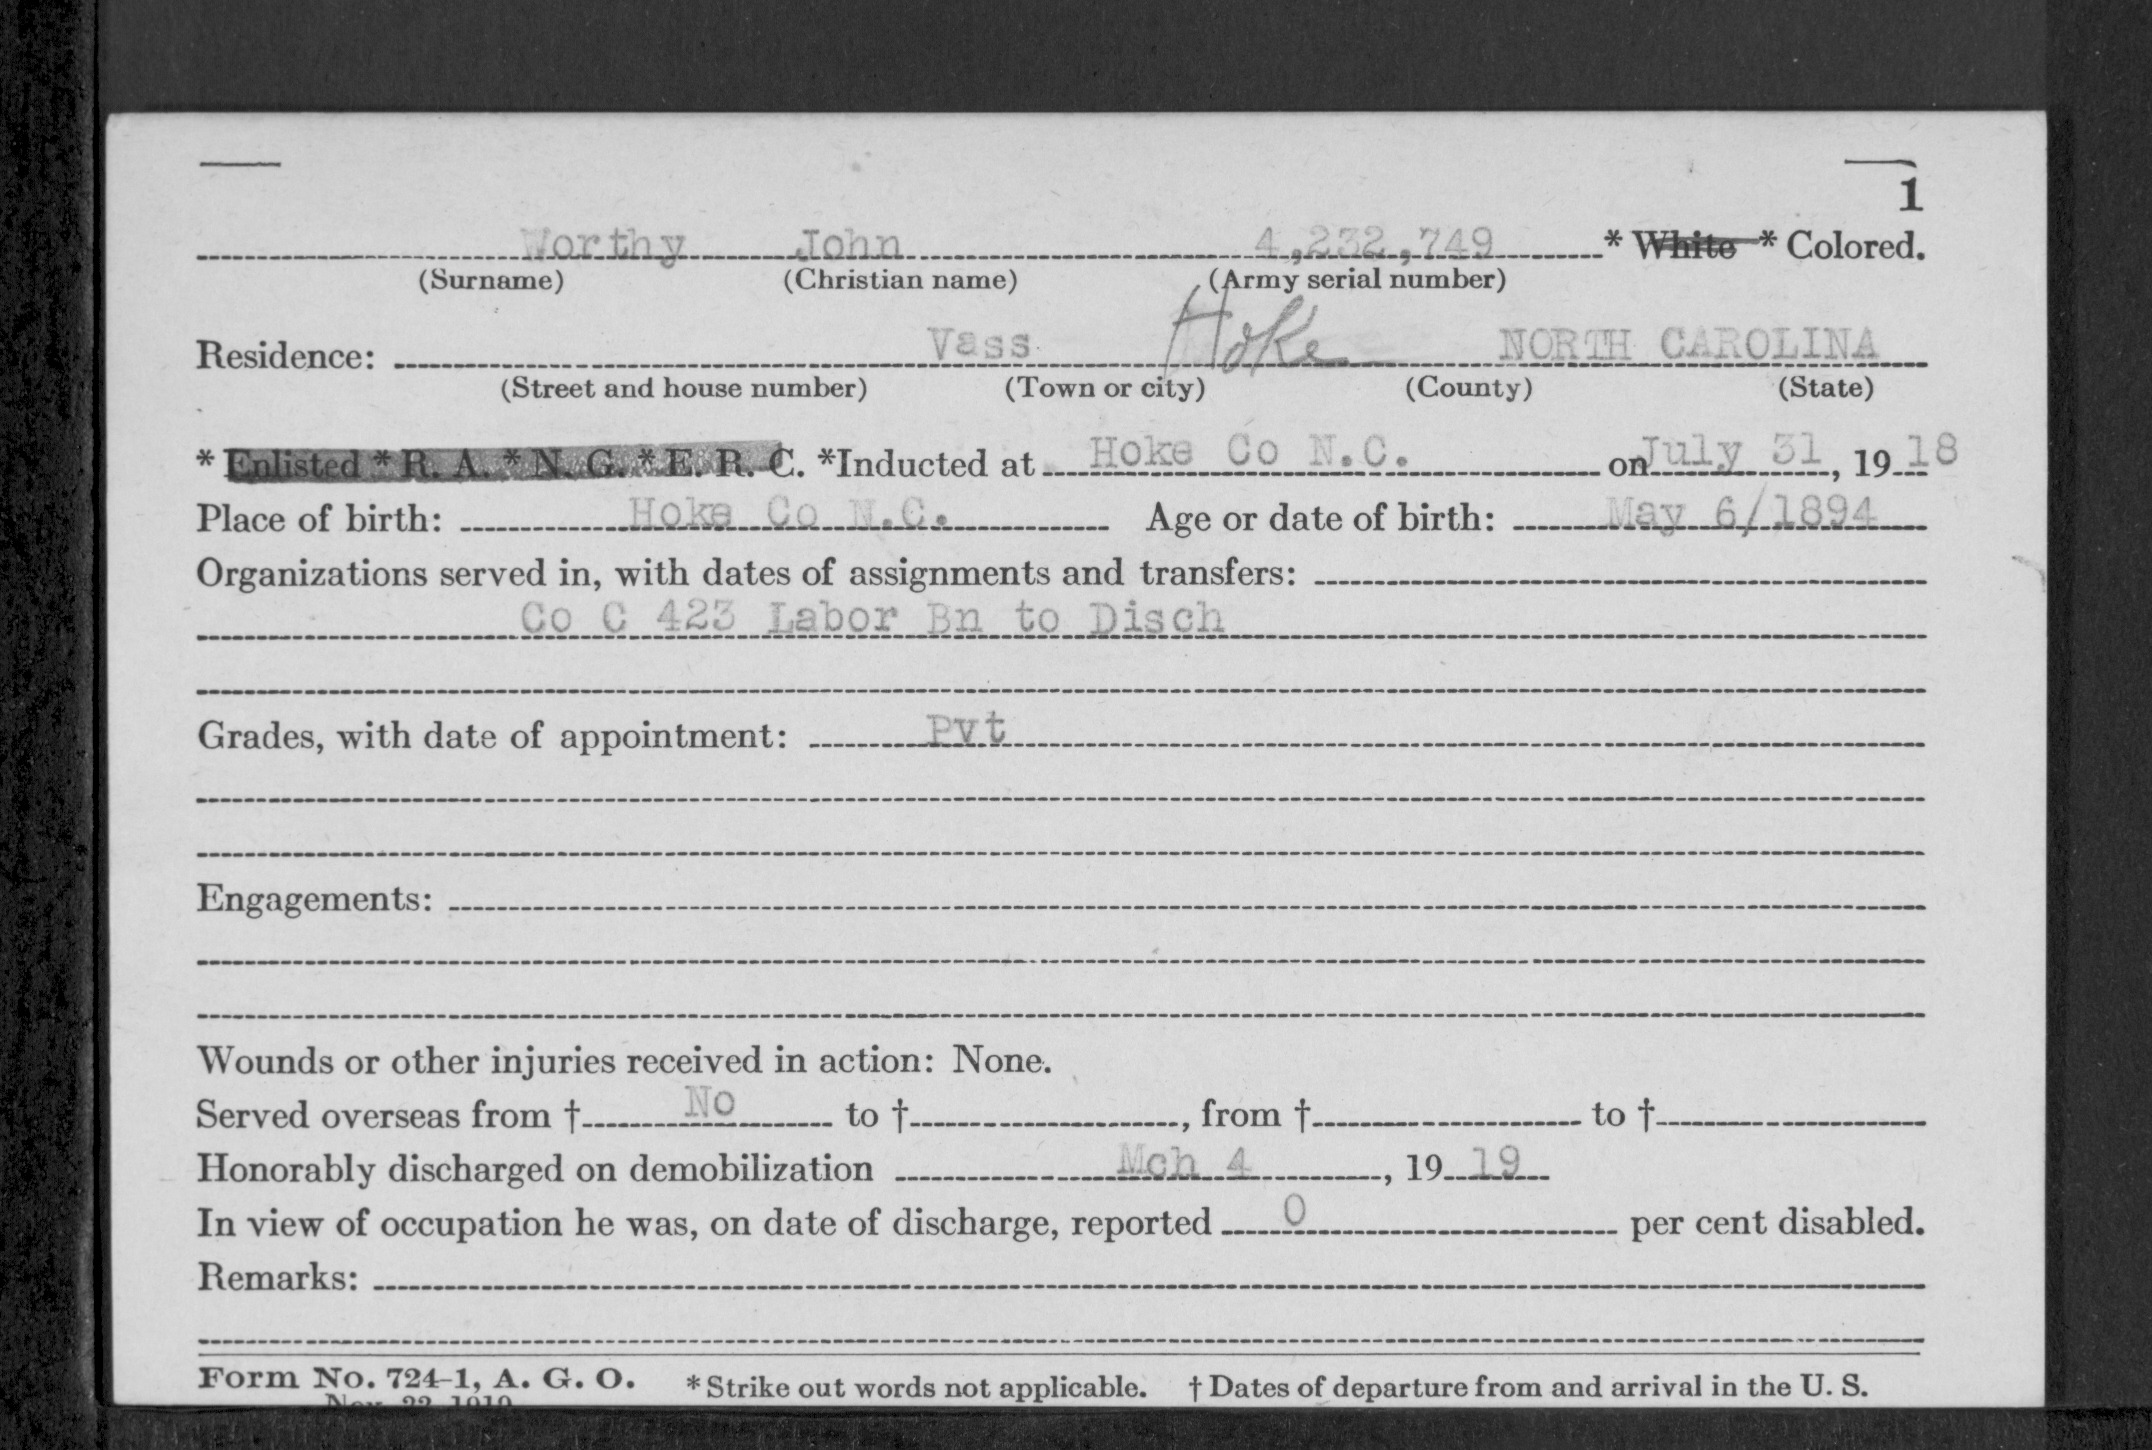 1
Worthy John 4,232,749 * White * Colored.
(Surname) (Christian name) (Army serial number)
Residence: Vass Hoke NORTH CAROLINA
(Street and house number) (Town or city) (County) (State)
* Enlisted * R. A. * N. G. * E. R. C. *Inducted at Hoke Co N.C. on July 31, 19 18
Place of birth: Hoke Co N.C. Age or date of birth: May 6/1894
Organizations served in, with dates of assignments and transfers:
Co C 423 Labor Bn to Disch
Grades, with date of appointment: Pvt
Engagements:
Wounds or other injuries received in action: None.
Served overseas from † No to †, from † to †
Honorably discharged on demobilization Mch 4, 19 19
In view of occupation he was, on date of discharge, reported 0 per cent disabled.
Remarks:
Form No. 724-1, A. G. O. * Strike out words not applicable. † Dates of departure from and arrival in the U. S.
Nov. 22 1919